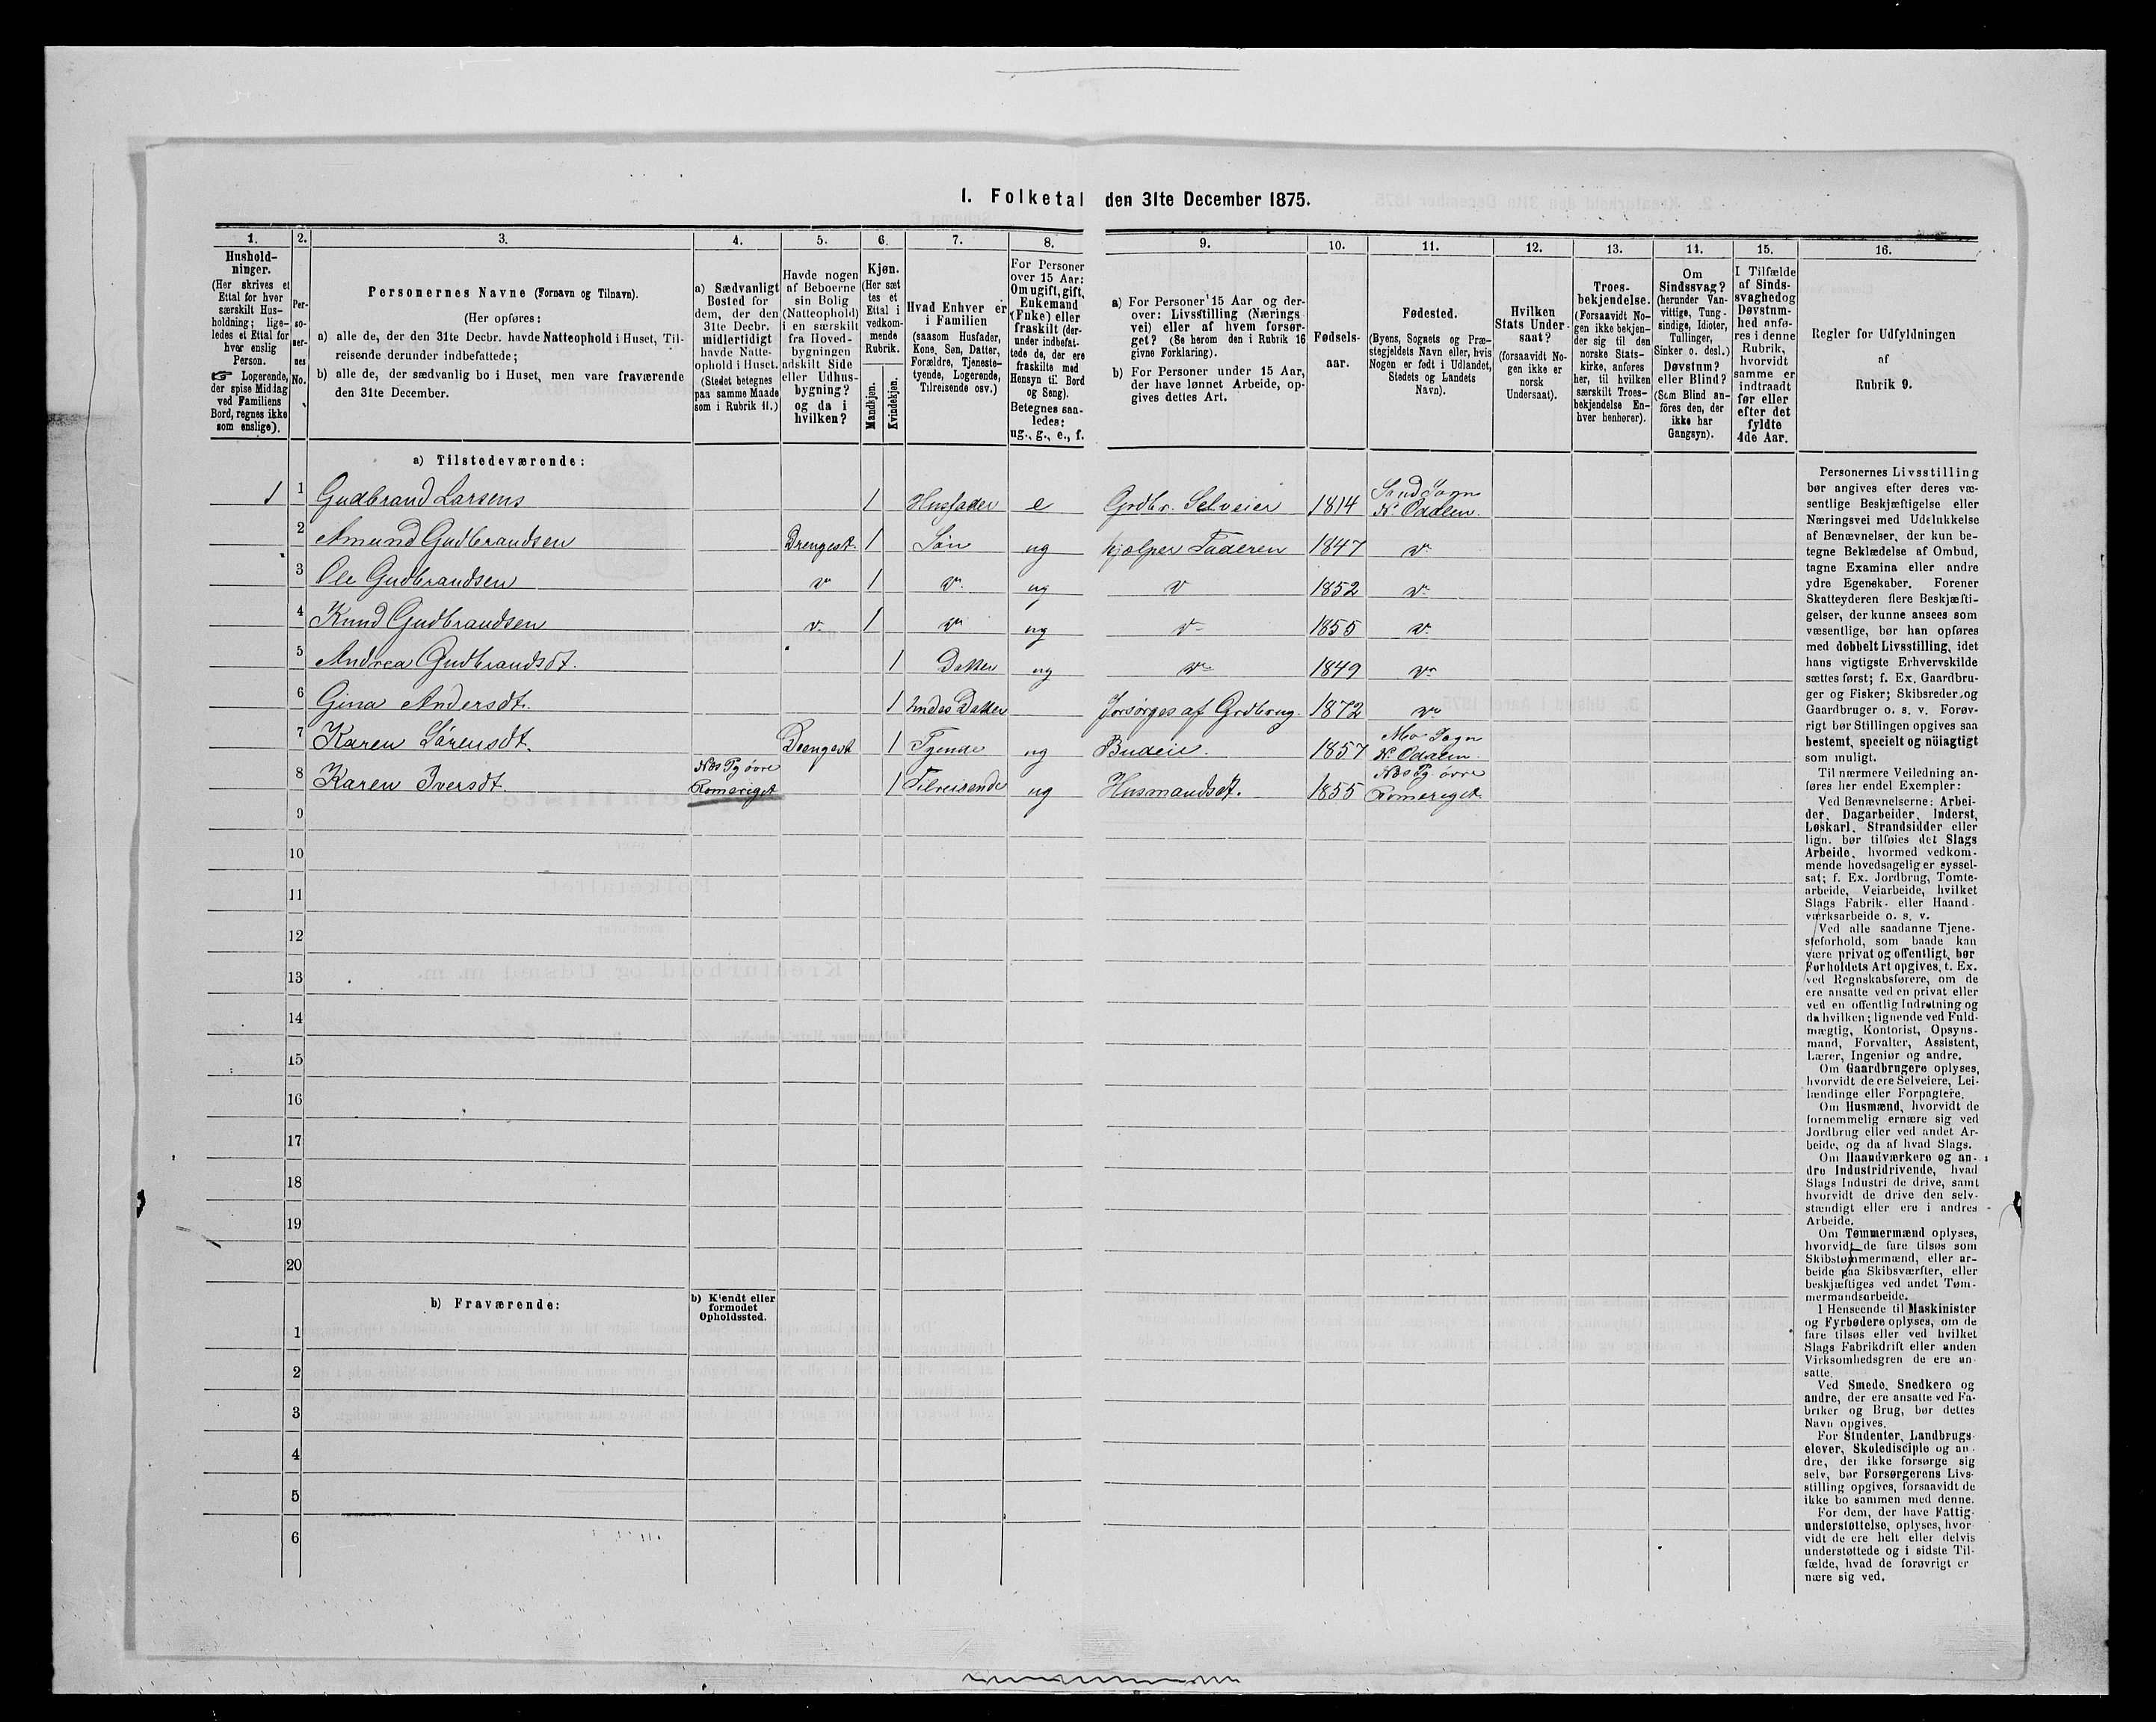 1. Folketal den 31te December 1875.
1.
Hushold-
ninger.
(Her skrives et
Ettal for hver
særskilt Hus-
holdning; lige-
ledes et Ettal for
hver enslig
Person.
☞ Logerende,
der spise Middag
ved Familiens
Bord, regnes ikke
som enslige).
2.
Per-
so-
ner-
nes
No.
3.
Personernes Navne (Fornavn og Tilnavn).
(Her opføres:
a) alle de, der den 31te Decbr. havde Natteophold i Huset, Til-
reisende derunder indbefattede;
b) alle de, der sædvanlig bo i Huset, men vare fraværende
den 31te December.
4.
a) Sædvanligt
Bosted for
dem, der den
31te Decbr.
midlertidigt
havde Natte-
ophold i Huset.
(Stedet betegnes
paa samme Maade
som i Rubrik 11.)
5.
Havde nogen
af Beboerne
sin Bolig
(Natteophold)
i en særskilt
fra Hoved-
bygningen
adskilt Side
eller Udhus-
bygning?
og da i
hvilken?
6.
Kjøn.
(Her sæt
tes et
Ettal i
vedkom-
mende
Rubrik.
Mandkjøn.
Kvindekjøn.
7.
Hvad Enhver er
i Familien
(saasom Husfader,
Kone, Søn, Datter,
Forældre, Tjeneste-
tyende, Logerende,
Tilreisende osv.)
8.
For Personer
over 15 Aar:
Om ugift, gift,
Enkemand
(Enke) eller
fraskilt (der-
under indbefat-
tede de, der ere
fraskilte med
Hensyn til Bord
og Seng).
Betegnes saa-
ledes:
ug., g., e., f.
9.
a) For Personer 15 Aar og der-
over: Livsstilling (Nærings
vei) eller af hvem forsør-
get? (Se herom den i Rubrik 16
givne Forklaring).
b) For Personer under 15 Aar,
der have lønnet Arbeide, op-
gives dettes Art.
10.
Fødsels-
aar.
11.
Fødested.
(Byens, Sognets og Præ-
stegjeldets Navn eller, hvis
Nogen er født i Udlandet,
Stedets og Landets
Navn).
12.
Hvilken
Stats Under-
saat?
(forsaavidt No-
gen ikke er
norsk
Undersaat).
13.
Troes-
bekjendelse.
(Forsaavidt No-
gen ikke bekjen-
der sig til den
norske Stats-
kirke, anføres
her, til hvilken
særskilt Troes-
bekjendelse En-
hver henhører).
14.
Om
Sindssvag?
(herunder Van-
vittige, Tung-
sindige, Idioter,
Tullinger,
Sinker o. desl.)
Døvstum?
eller Blind?
(Som Blind an-
føres den, der
ikke har
Gangsyn).
15.
I Tilfælde
af Sinds-
svaghed og
Døvstum-
hed anfø-
res i denne
Rubrik,
hvorvidt
samme er
indtraadt
før eller
efter det
fyldte
4de Aar.
16.
Regler for Udfyldningen
af
Rubrik 9.
a) Tilstedeværende:
1 1 Gudbrand Larsens 1 Husfader e Grdbr. Selveier 1814 Sand Sogn N. Odalen.
2 Amund Gudbrandsen Drengest. 1 Søn ug hjælper Faderen 1847 v.
3 Ole Gudbrandsen v 1 v. ug v 1852 v.
4 Knud Gudbrandsen v. 1 v ug v 1855 v.
5 Andrea Gudbrandsdt. 1 Datter ug v. 1849 v.
6 Gina Andersdt. 1 hndes Datter Forsørges af Grdbrug. 1872 v.
7 Karen Sørensdt. Drengest 1 Tyende ug Budeie. 1857 Mo Sogn N. Odalen.
8 Karen Iversdt. Næs Pg øvre Romeriget 1 Tilreisende ug Husmandsdt. 1855 Næs Pg. øvre Romeriget.
9
10
11
12
13
14
15
16
17
18
19
20
b) Fraværende:
b) Kjendt eller
formodet
Opholdssted.
1
2
3
4
5
6
Personernes Livsstilling
bør angives efter deres væ-
sentlige Beskjæftigelse eller
Næringsvei med Udelukkelse
af Benævnelser, der kun be-
tegne Beklædelse af Ombud,
tagne Examina eller andre
ydre Egenskaber. Forener
Skatteyderen flere Beskjæfti-
gelser, der kunne ansees som
væsentlige, bør han opføres
med dobbelt Livsstilling, idet
hans vigtigste Erhvervskilde
sættes først; f. Ex. Gaardbru-
ger og Fisker; Skibsreder og
Gaardbruger o. s. v. Forøv-
rigt bør Stillingen opgives saa
bestemt, specielt og nöiagtigt
som muligt.
Til nærmere Veiledning an-
føres her endel Exempler:
Ved Benævnelserne: Arbei-
der, Dagarbeider, Inderst,
Løskarl, Strandsidder eller
lign. bør tilføies det Slags
Arbeide, hvormed vedkom-
mende hovedsagelig er syssel-
sat; f. Ex. Jordbrug, Tomte-
arbeide, Veiarbeide, hvilket
Slags Fabrik- eller Haand-
værksarbeide o. s. v.
Ved alle saadanne Tjene-
steforhold, som baade kan
være privat og offentligt, bør
Forholdets Art opgives, t. Ex.
ved Regnskabsførere, om de
ere ansatte ved en privat eller
ved en offentlig Indretning og
da hvilken; lignende ved Fuld-
mægtig, Kontorist, Opsyns-
mand, Forvalter, Assistent,
Lærer, Ingeniør og andre.
Om Gaardbrugere oplyses,
hvorvidt de ere Selveiere, Lei-
lændinge eller Forpagtere.
Om Husmænd, hvorvidt de
fornemmelig ernære sig ved
Jordbrug eller ved andet Ar-
beide, og da af hvad Slags.
Om Haandværkere og an-
dre Industridrivende, hvad
Slags Industri de drive, samt
hvorvidt de drive den selv-
stændigt eller ere i andres
Arbeide.
Om Tømmermænd oplyses,
hvorvidt de fare tilsøs som
Skibstømmermænd, eller ar-
beide paa Skibsværfter, eller
beskjæftiges ved andet Tøm-
mermandsarbeide.
I Henseende til Maskinister
og Fyrbødere oplyses, om de
fare tilsøs eller ved hvilket
Slags Fabrikdrift eller anden
Virksomhedsgren de ere an-
satte.
Ved Smede, Snedkere og
andre, der ere ansatte ved Fa-
briker og Brug, bør dettes
Navn opgives.
For Studenter, Landbrugs-
elever, Skoledisciple og an-
dre, der ikke forsørge sig
selv, bør Forsørgerens Livs-
stilling opgives, forsaavidt de
ikke bo sammen med denne.
For dem, der have Fattig-
understøttelse, oplyses, hvor
vidt de ere helt eller delvis
understøttede og i sidste Til-
fælde, hvad de forøvrigt er
nære sig ved.